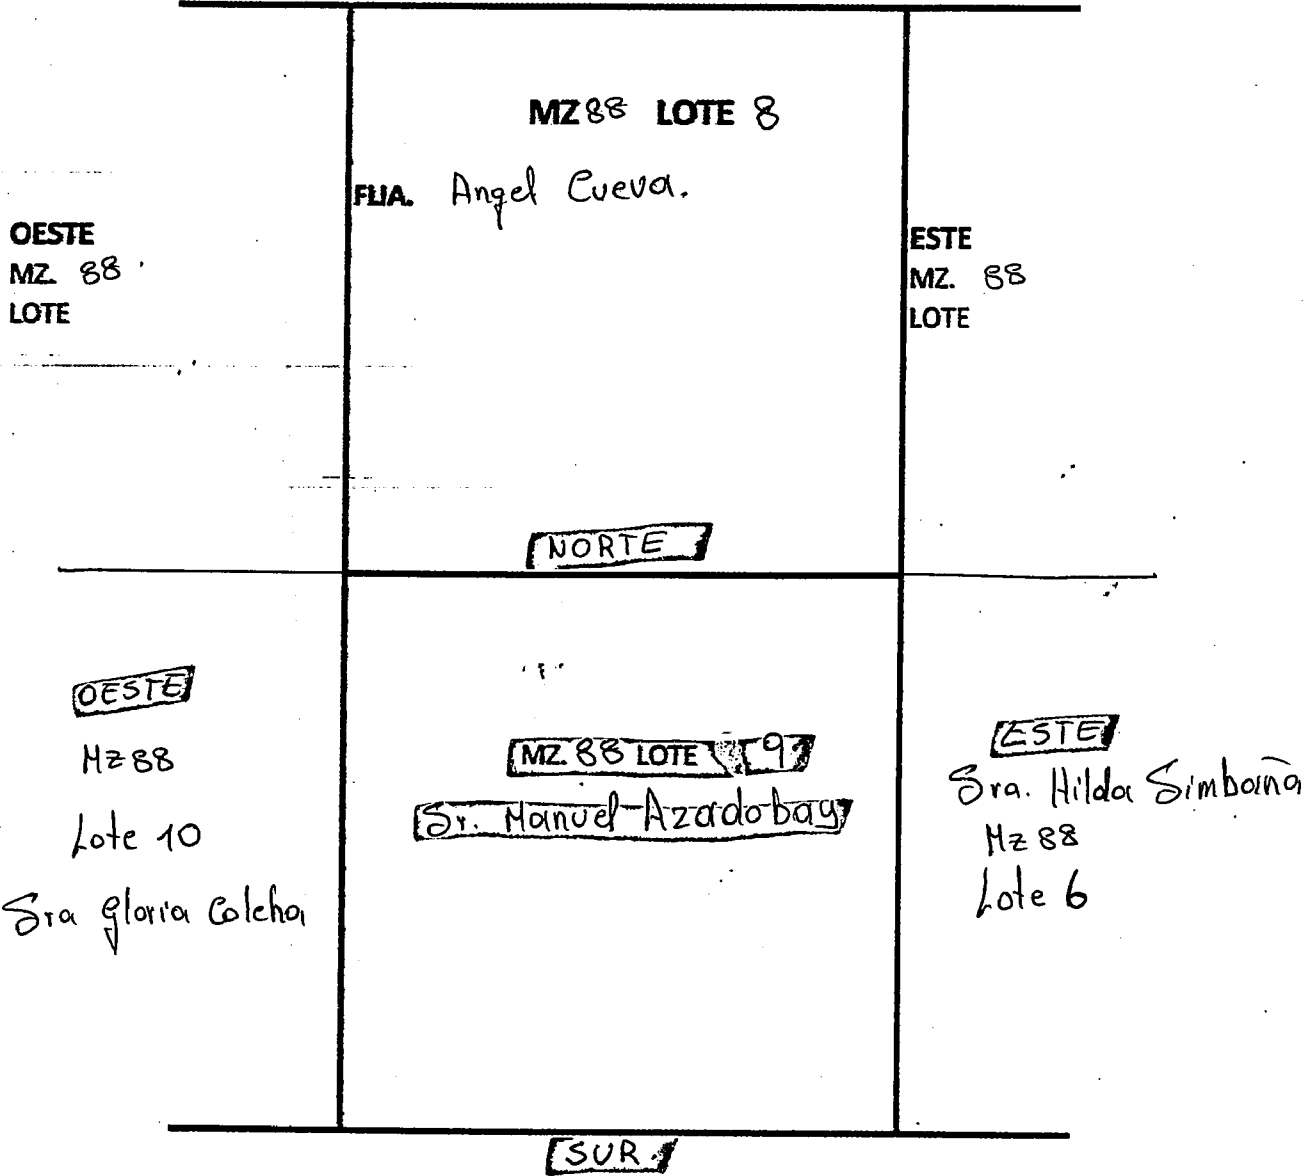 MZ 88 LOTE 8
FLIA. Angel Cueva.
OESTE
MZ. 88
LOTE
ESTE
MZ. 88
LOTE
NORTE
OESTE
Mz 88
Lote 10
Sra Gloria Colcha
MZ. 88 LOTE 9
Sr. Manuel Azadobay
ESTE
Sra. Hilda Simbaña
Mz 88
Lote 6
SUR